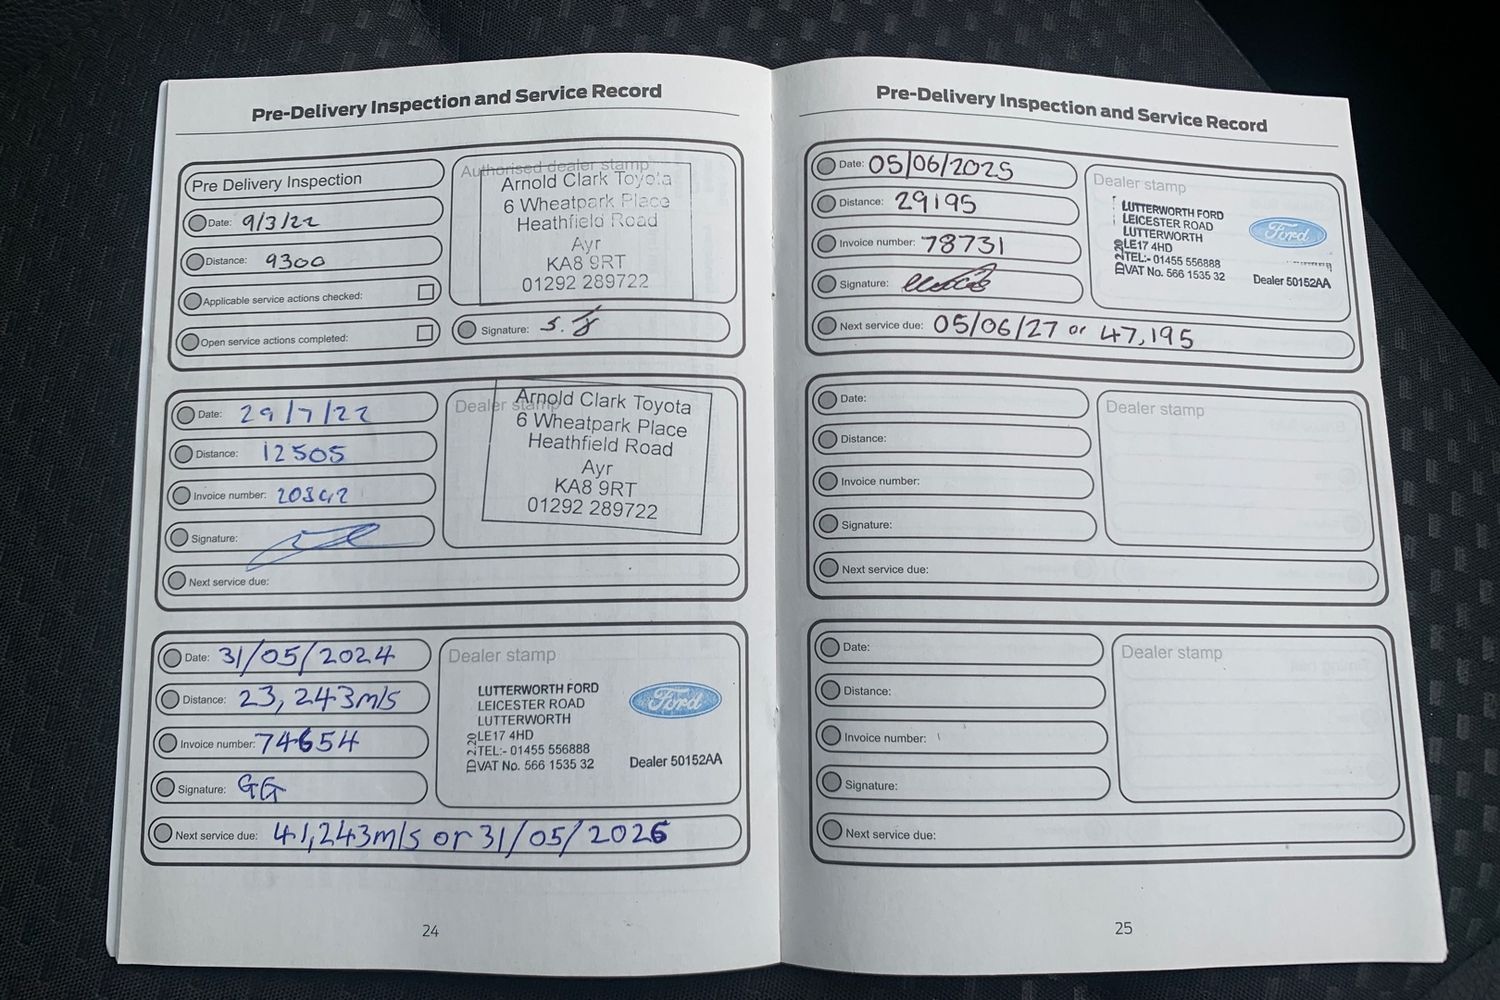 Pre-Delivery Inspection and Service Record
Pre Delivery Inspection
Date: 9/3/22
Distance: 9300
Applicable service actions checked:
Open service actions completed:
Authorised dealer stamp
Arnold Clark Toyota
6 Wheatpark Place
Heathfield Road
Ayr
KA8 9RT
01292 289722
Signature:
Date: 29/7/22
Distance: 12505
Invoice number:
Signature:
Next service due:
Dealer stamp
Arnold Clark Toyota
6 Wheatpark Place
Heathfield Road
Ayr
KA8 9RT
01292 289722
Date: 31/05/2024
Distance: 23,243m/s
Invoice number: 74654
Signature: GG
Next service due: 41,243m/s or 31/05/2026
Dealer stamp
LUTTERWORTH FORD
LEICESTER ROAD
LUTTERWORTH
LE17 4HD
TEL:- 01455 556888
VAT No. 566 1535 32
ID 2.20
Ford
Dealer 50152AA
24
Pre-Delivery Inspection and Service Record
Date: 05/06/2025
Distance: 29195
Invoice number: 78731
Signature:
Next service due: 05/06/27 or 47,195
Dealer stamp
LUTTERWORTH FORD
LEICESTER ROAD
LUTTERWORTH
LE17 4HD
TEL:- 01455 556888
VAT No. 566 1535 32
Ford
Dealer 50152AA
Date:
Distance:
Invoice number:
Signature:
Next service due:
Dealer stamp
Date:
Distance:
Invoice number:
Signature:
Next service due:
Dealer stamp
25